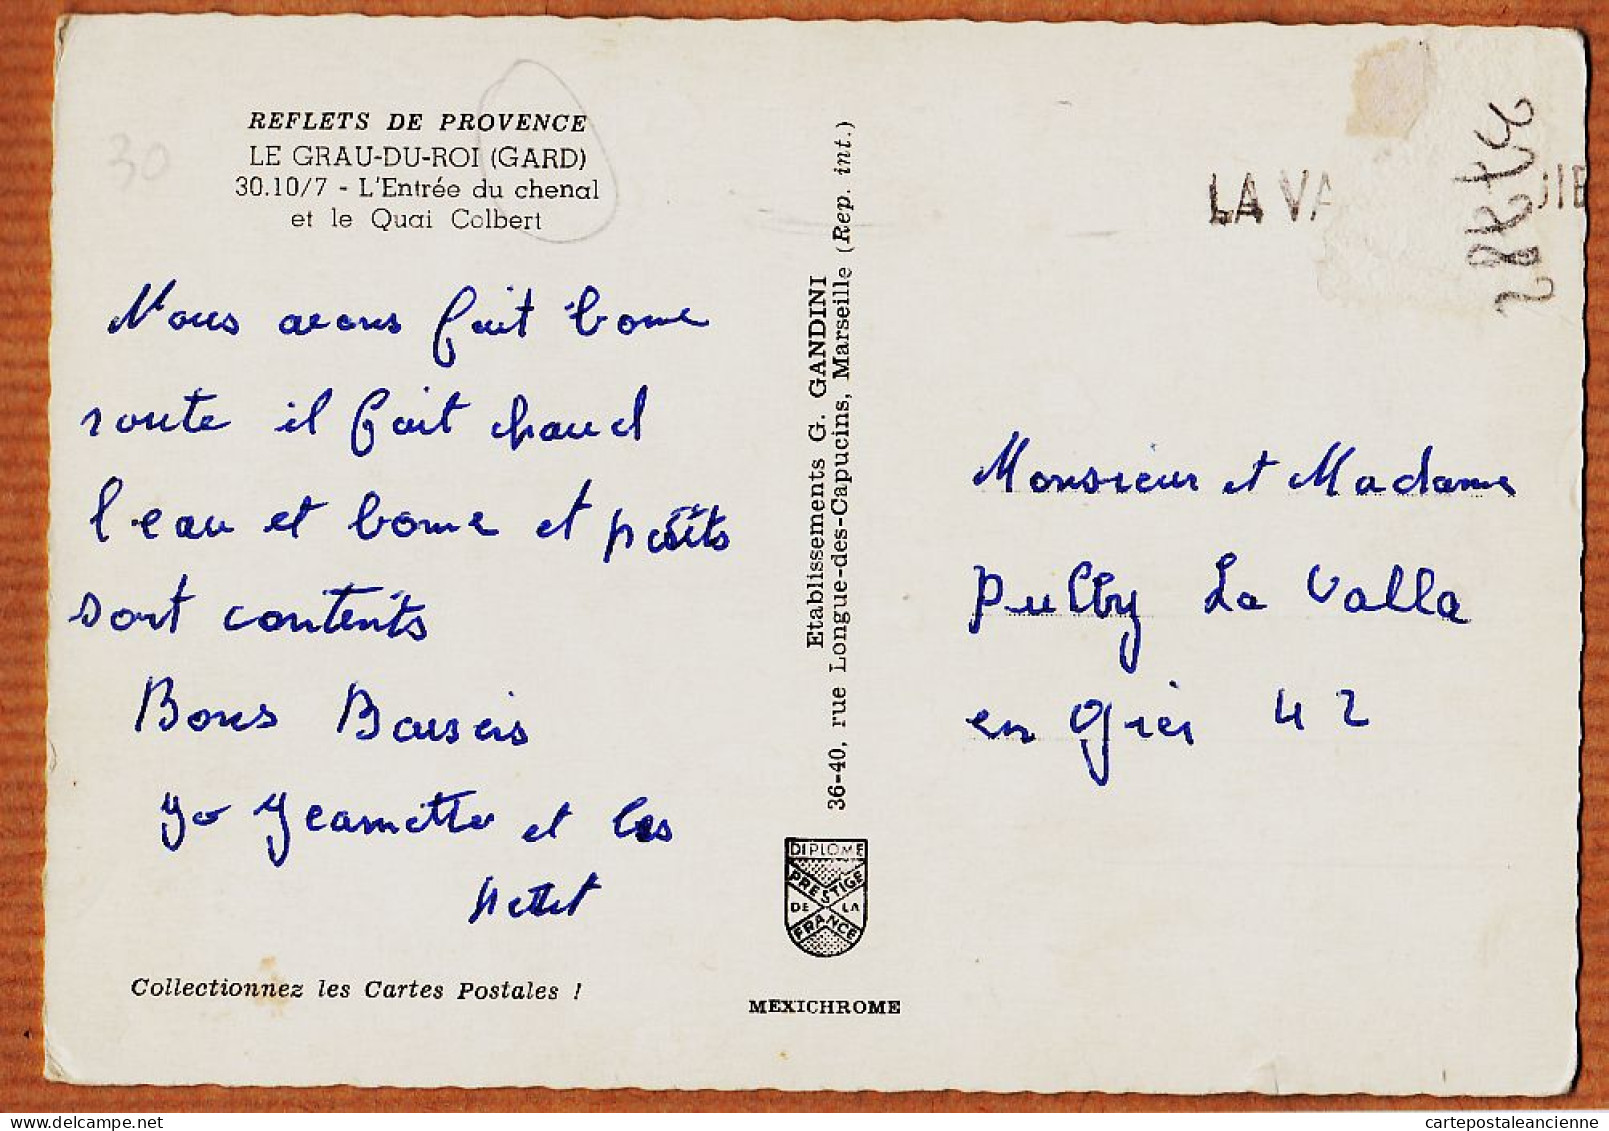 30
REFLETS DE PROVENCE
LE GRAU-DU-ROI (GARD)
30.10/7 - L'Entrée du chenal
et le Quai Colbert
Nous avons fait bonne
route il fait chaud
l'eau et bonne et petits
sont contents
Bons Baisers
yo Jeannette et les
Collectionnez les Cartes Postales !
Etablissements G. GANDINI
36-40, rue Longue-des-Capucins, Marseille (Rep. int.)
DIPLOME
PRESTIGE
DE LA
FRANCE
MEXICHROME
LA VA
Monsieur et Madame
La Valla
en Gier 42
cartepostaleancienne